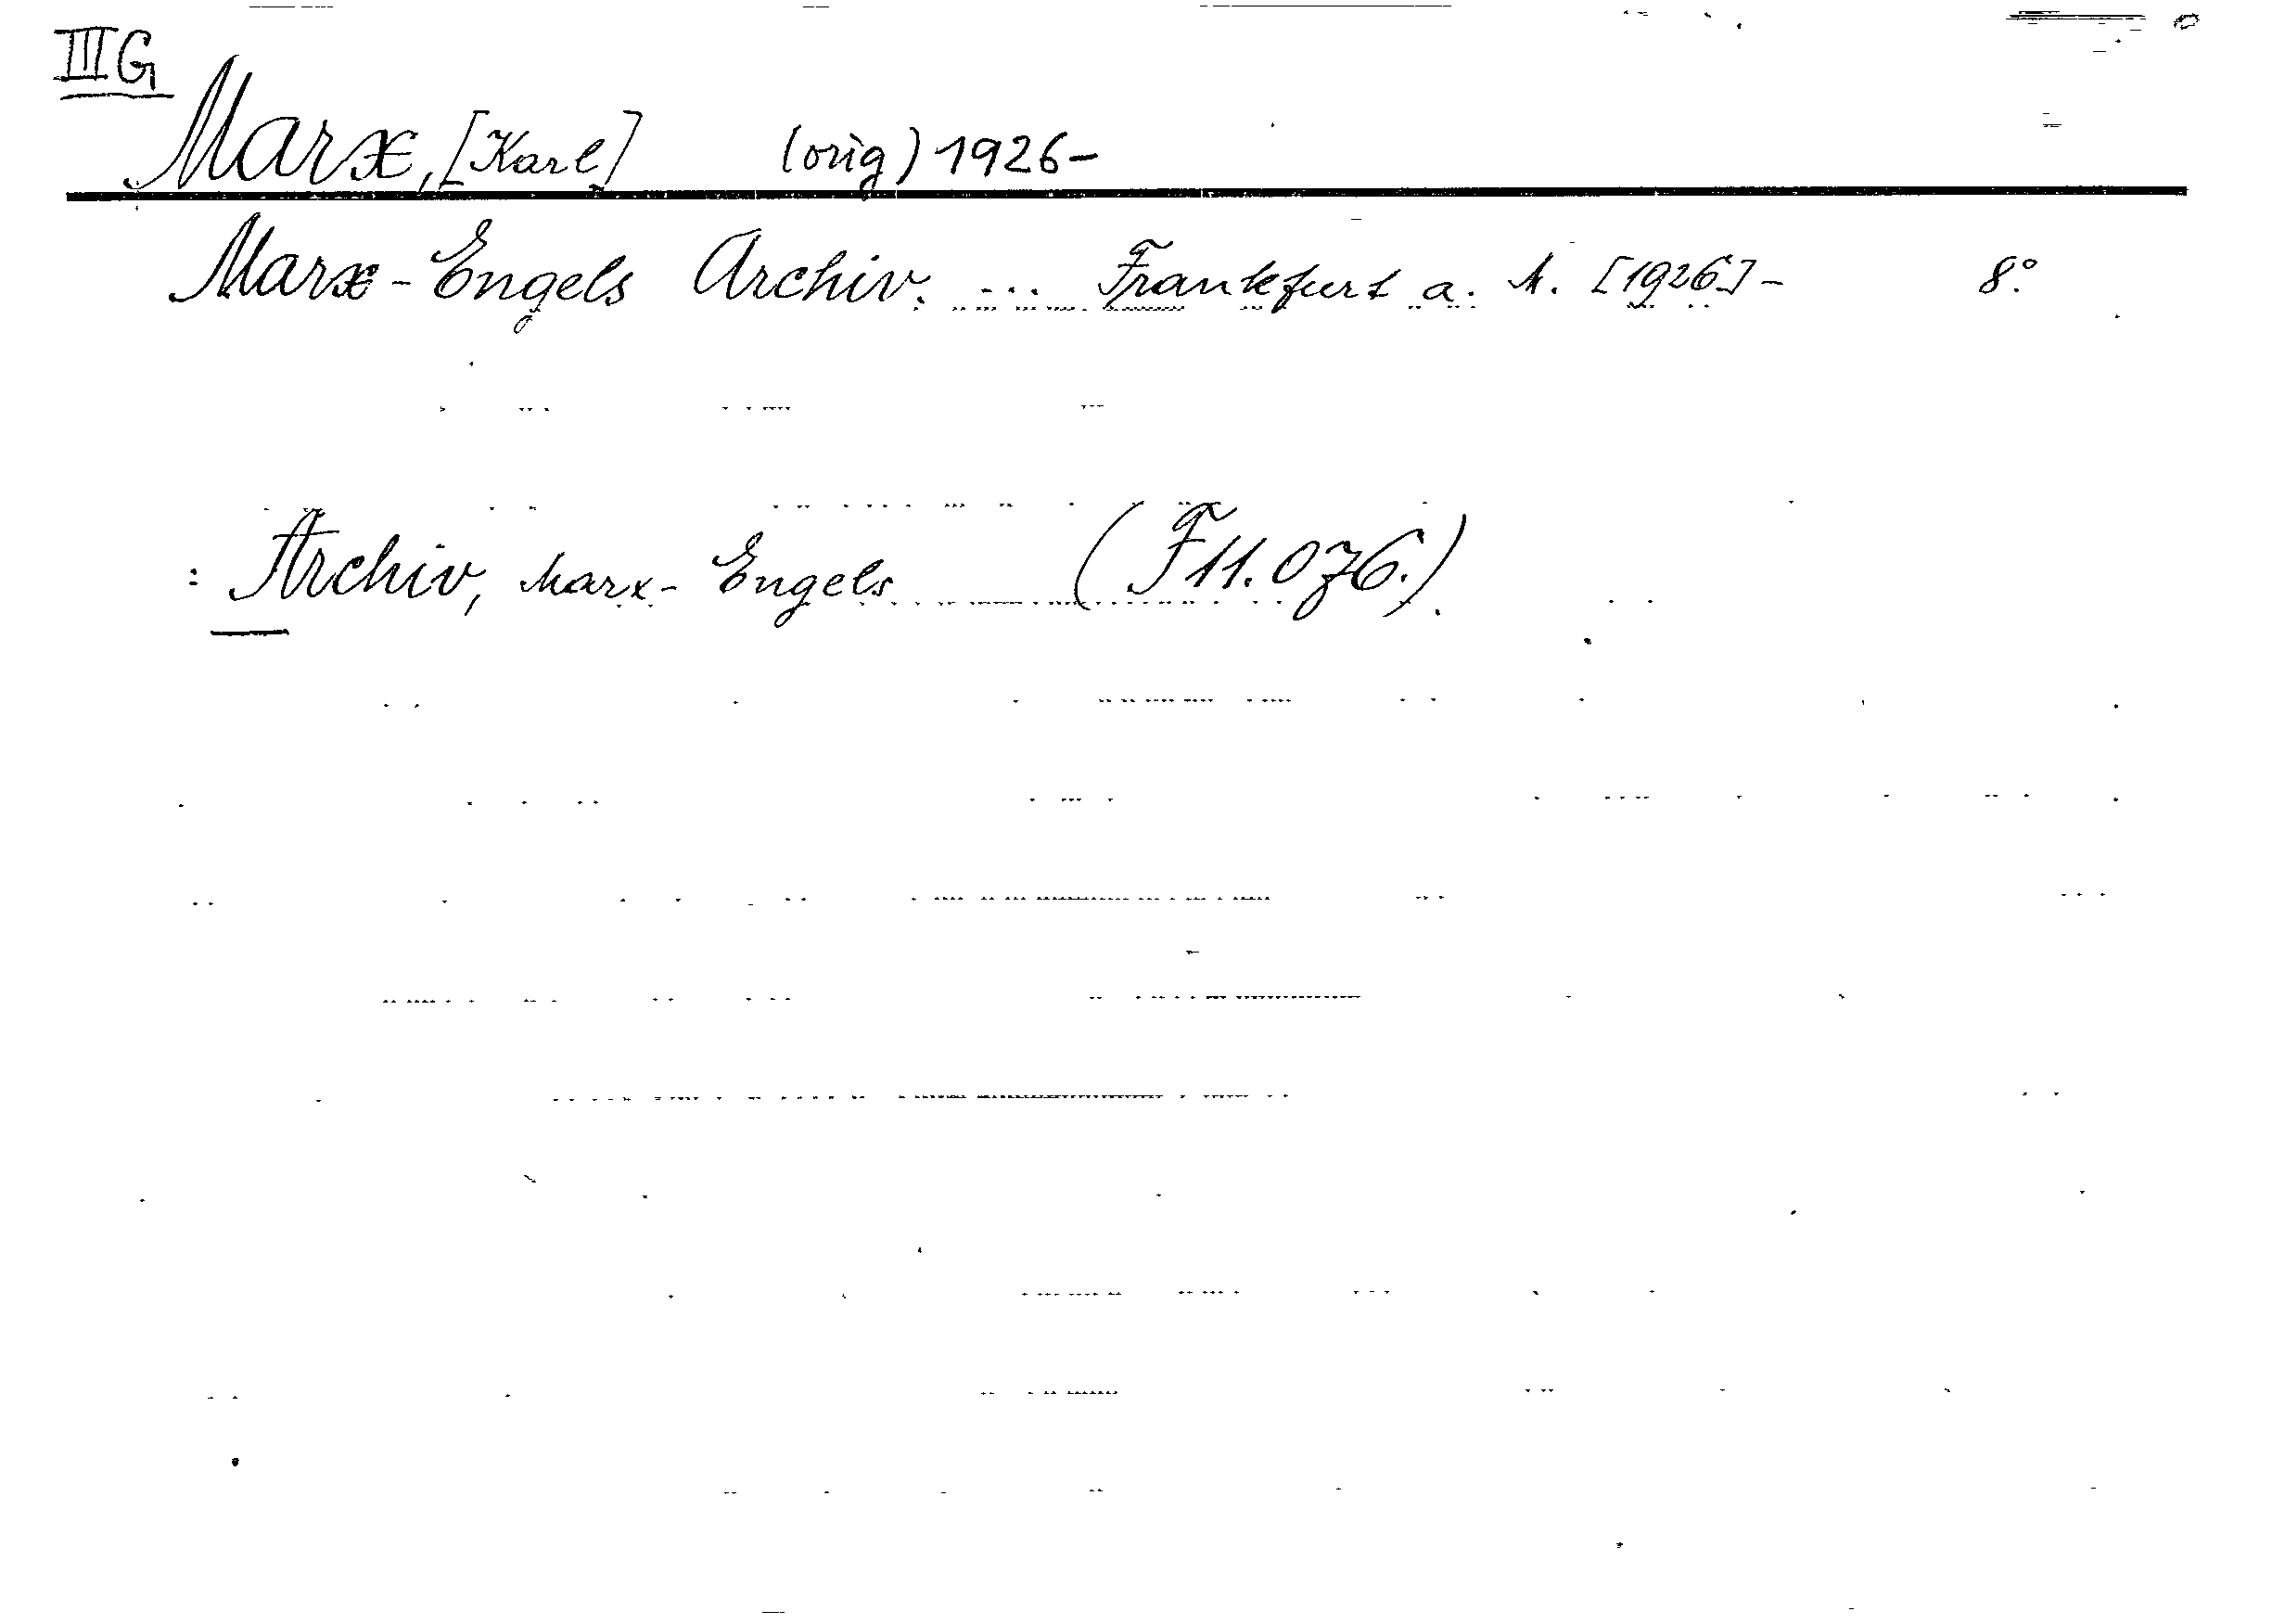 III G
Marx, [Karl] (orig) 1926-
Marx-Engels Archiv. ... Frankfurt a. M. [1926]- 8°.
: Archiv, Marx-Engels (F11.076.)